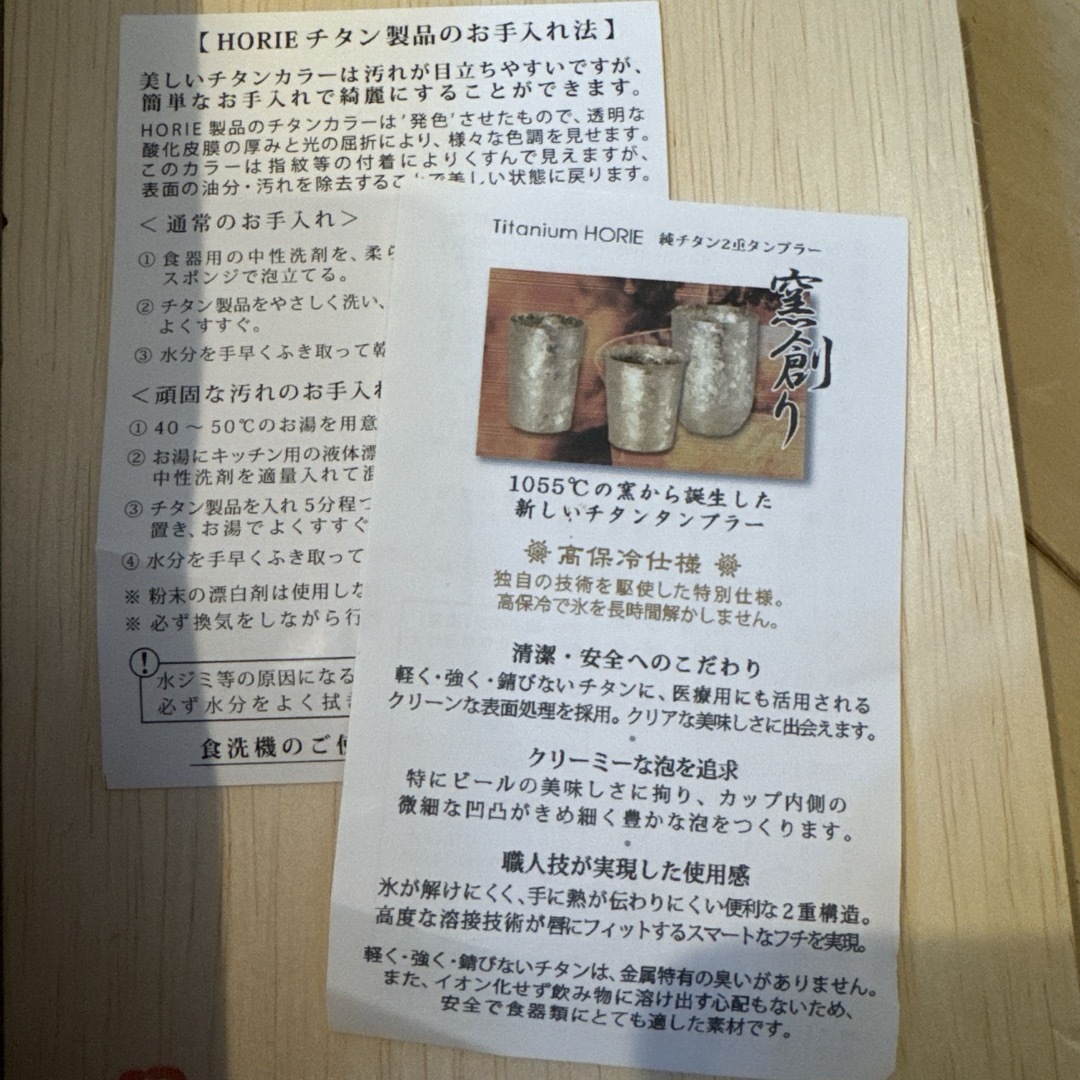 【 HORIE チタン製品のお手入れ法 】
美しいチタンカラーは汚れが目立ちやすいですが、
簡単なお手入れで綺麗にすることができます。
HORIE 製品のチタンカラーは‘発色’させたもので、透明な
酸化皮膜の厚みと光の屈折により、様々な色調を見せます。
このカラーは指紋等の付着によりくすんで見えますが、
表面の油分・汚れを除去することで美しい状態に戻ります。
＜ 通常のお手入れ＞
① 食器用の中性洗剤を、柔ら
スポンジで泡立てる。
② チタン製品をやさしく洗い、
よくすすぐ。
③ 水分を手早くふき取って乾
＜頑固な汚れのお手入れ
① 40 ～ 50℃のお湯を用意
② お湯にキッチン用の液体漂
中性洗剤を適量入れて混
③ チタン製品を入れ 5分程つ
置き、お湯でよくすすぐ
④ 水分を手早くふき取って
※ 粉末の漂白剤は使用しな
※ 必ず換気をしながら行
!
水ジミ等の原因になる
必ず水分をよく拭き
食洗機のご使
Titanium HORIE 純チタン2重タンブラー
窯創り
1055℃の窯から誕生した
新しいチタンタンブラー
高保冷仕様
独自の技術を駆使した特別仕様。
高保冷で氷を長時間解かしません。
清潔・安全へのこだわり
軽く・強く・錆びないチタンに、医療用にも活用される
クリーンな表面処理を採用。クリアな美味しさに出会えます。
クリーミーな泡を追求
特にビールの美味しさに拘り、カップ内側の
微細な凹凸がきめ細く豊かな泡をつくります。
職人技が実現した使用感
氷が解けにくく、手に熱が伝わりにくい便利な2重構造。
高度な溶接技術が唇にフィットするスマートなフチを実現。
軽く・強く・錆びないチタンは、金属特有の臭いがありません。
また、イオン化せず飲み物に溶け出す心配もないため、
安全で食器類にとても適した素材です。